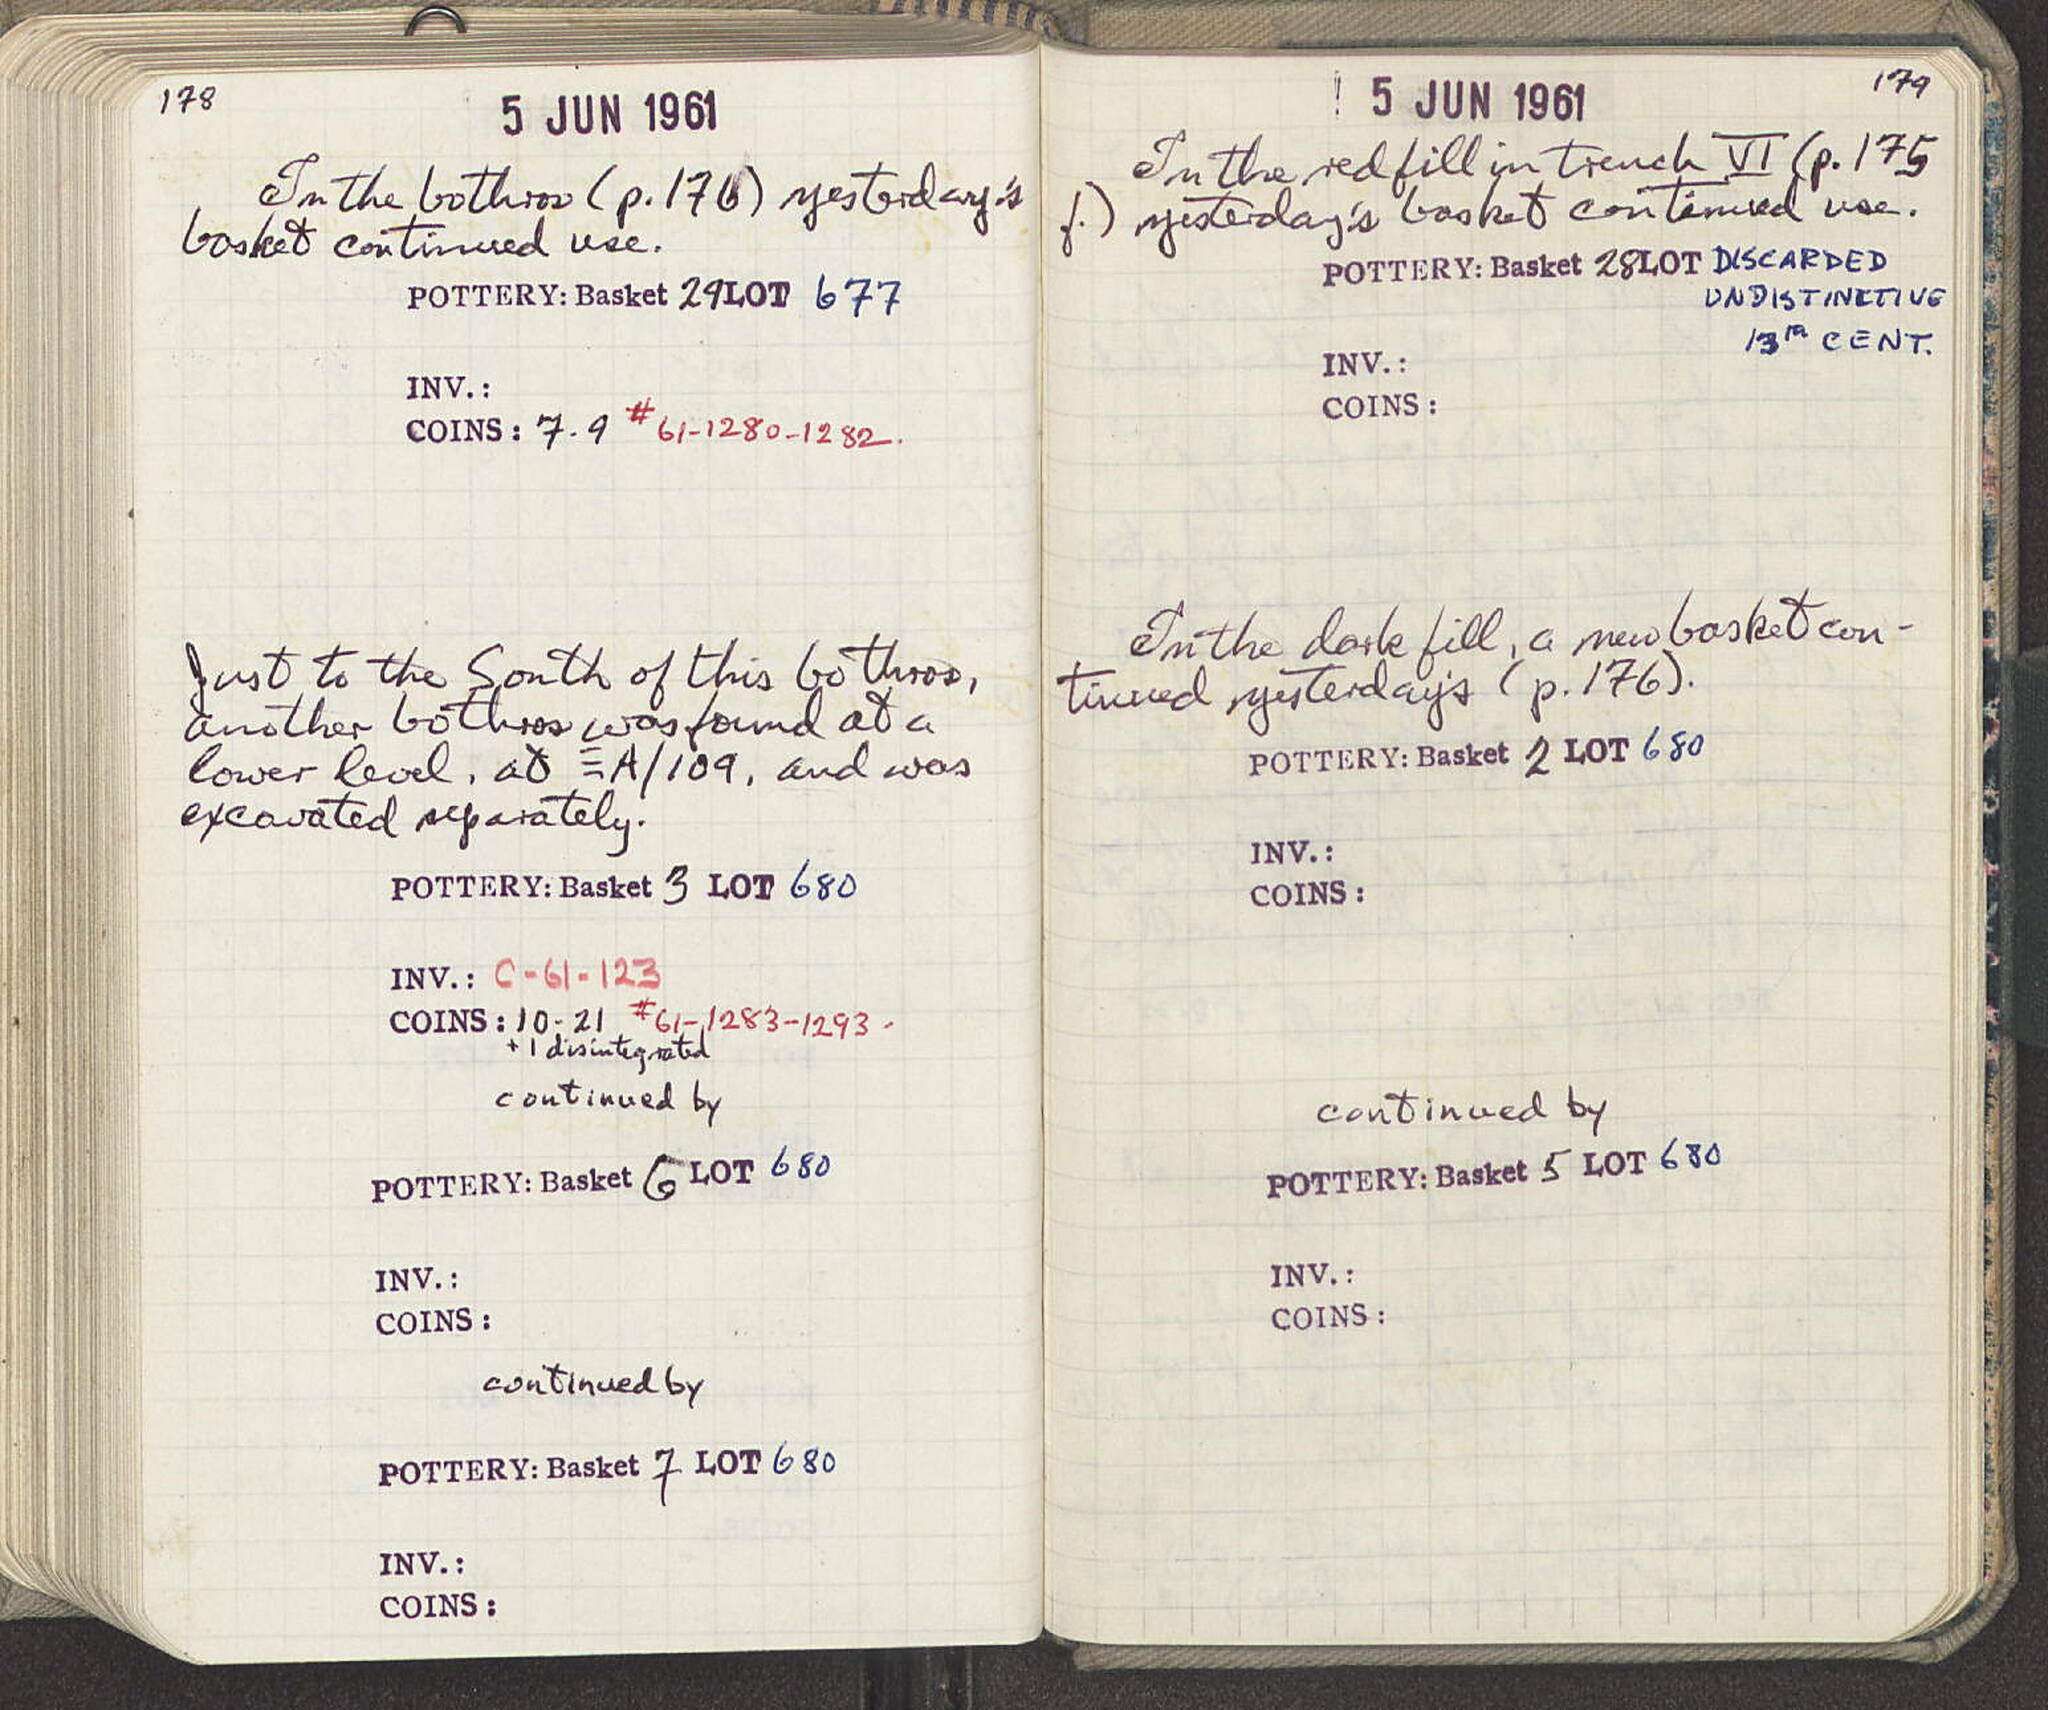 178
5 JUN 1961
In the bothros (p. 176) yesterday's
basket continued use.
POTTERY: Basket 29 LOT 677
INV.:
COINS: 7-9 #61-1280-1282.
Just to the South of this bothros,
another bothros was found at a
lower level, at ΞA/109, and was
excavated separately.
POTTERY: Basket 3 LOT 680
INV.: C-61-123
COINS: 10-21 #61-1283-1293.
+ 1 disintegrated
continued by
POTTERY: Basket 6 LOT 680
INV.:
COINS:
continued by
POTTERY: Basket 7 LOT 680
INV.:
COINS:
179
5 JUN 1961
In the red fill in trench VI (p. 175
f.) yesterday's basket continued use.
POTTERY: Basket 28 LOT DISCARDED
UNDISTINCTIVE
13th CENT.
INV.:
COINS:
In the dark fill, a new basket con-
tinued yesterday's (p. 176).
POTTERY: Basket 2 LOT 680
INV.:
COINS:
continued by
POTTERY: Basket 5 LOT 680
INV.:
COINS: